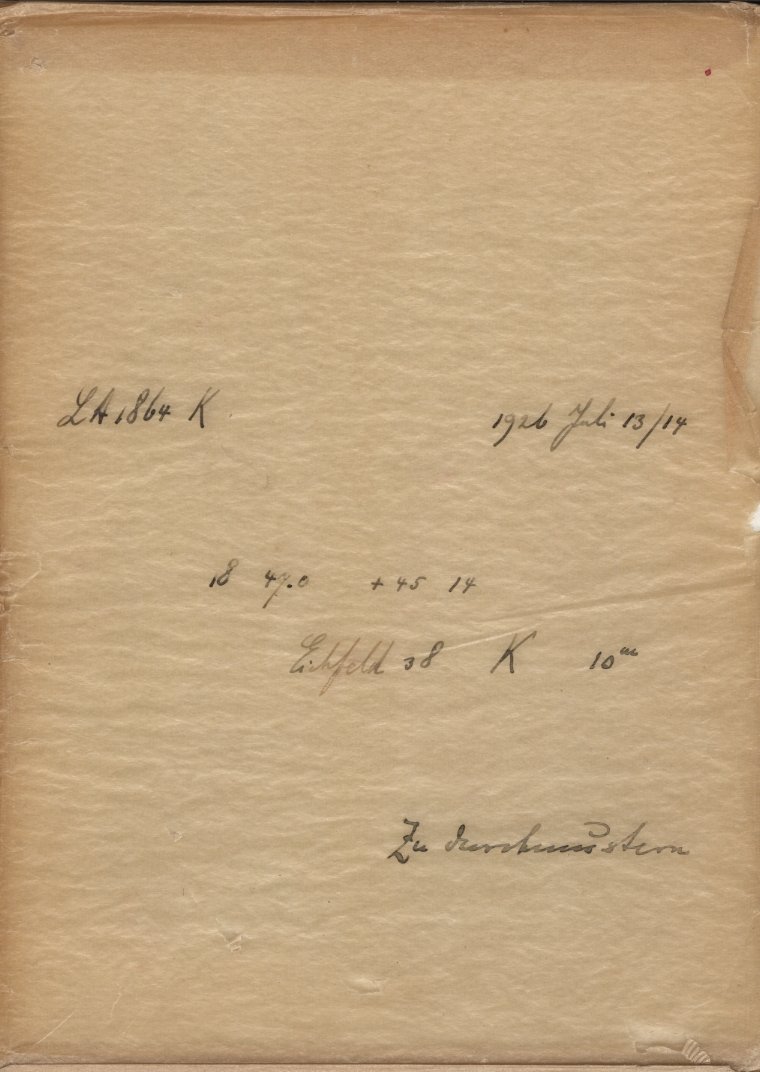 LA 1864 K 1926 Juli 13/14
18 47.0 +45 14
Eichfeld 38 K 10ᵐ
Zu durchmustern